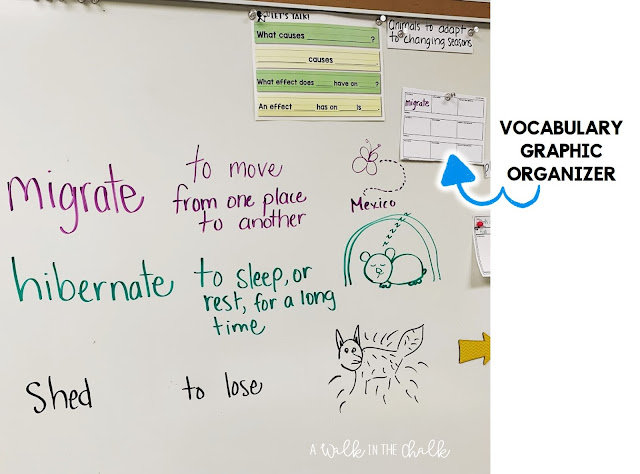 LET'S TALK!
What causes ____ ?
____ causes ____.
What effect does ____ have on ____?
An effect ____ has on ____ is ____.
Animals to adapt
to changing seasons
migrate
VOCABULARY
GRAPHIC
ORGANIZER
migrate
to move
from one place
to another
Mexico
hibernate
to sleep, or
rest, for a long
time
zzzzzz
Shed
to lose
A Walk IN THE Chalk